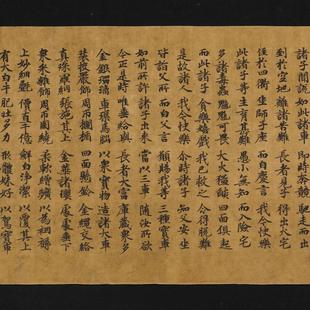 諸子聞說 如此諸車 即時奔競 馳走而出
到於空地 離諸苦難 長者見子 得出火宅
住於四衢 坐師子座 而自慶言 我今快樂
此諸子等 生育甚難 愚小無知 而入險宅
多諸毒虫 魑魅可畏 大火猛焰 四面俱起
而此諸子 貪樂嬉戲 我已救之 令得脫難
是故諸人 我今快樂 尒時諸子 知父安坐
皆詣父所 而白父言 願賜我等 三種寶車
如前所許 諸子出來 當以三車 隨汝所欲
今正是時 唯垂給與 長者大富 庫藏衆多
金銀瑠璃 車璖馬瑙 以衆寶物 造諸大車
莊挍嚴飾 周帀欄楯 四面懸鈴 金繩交絡
真珠羅網 張施其上 金華諸瓔 處處垂下
衆綵雜飾 周帀圍繞 柔軟繒纊 以為裀褥
上妙細㲲 價直千億 鮮白淨潔 以覆其上
有大白牛 肥壯多力 形體姝好 以駕寶車